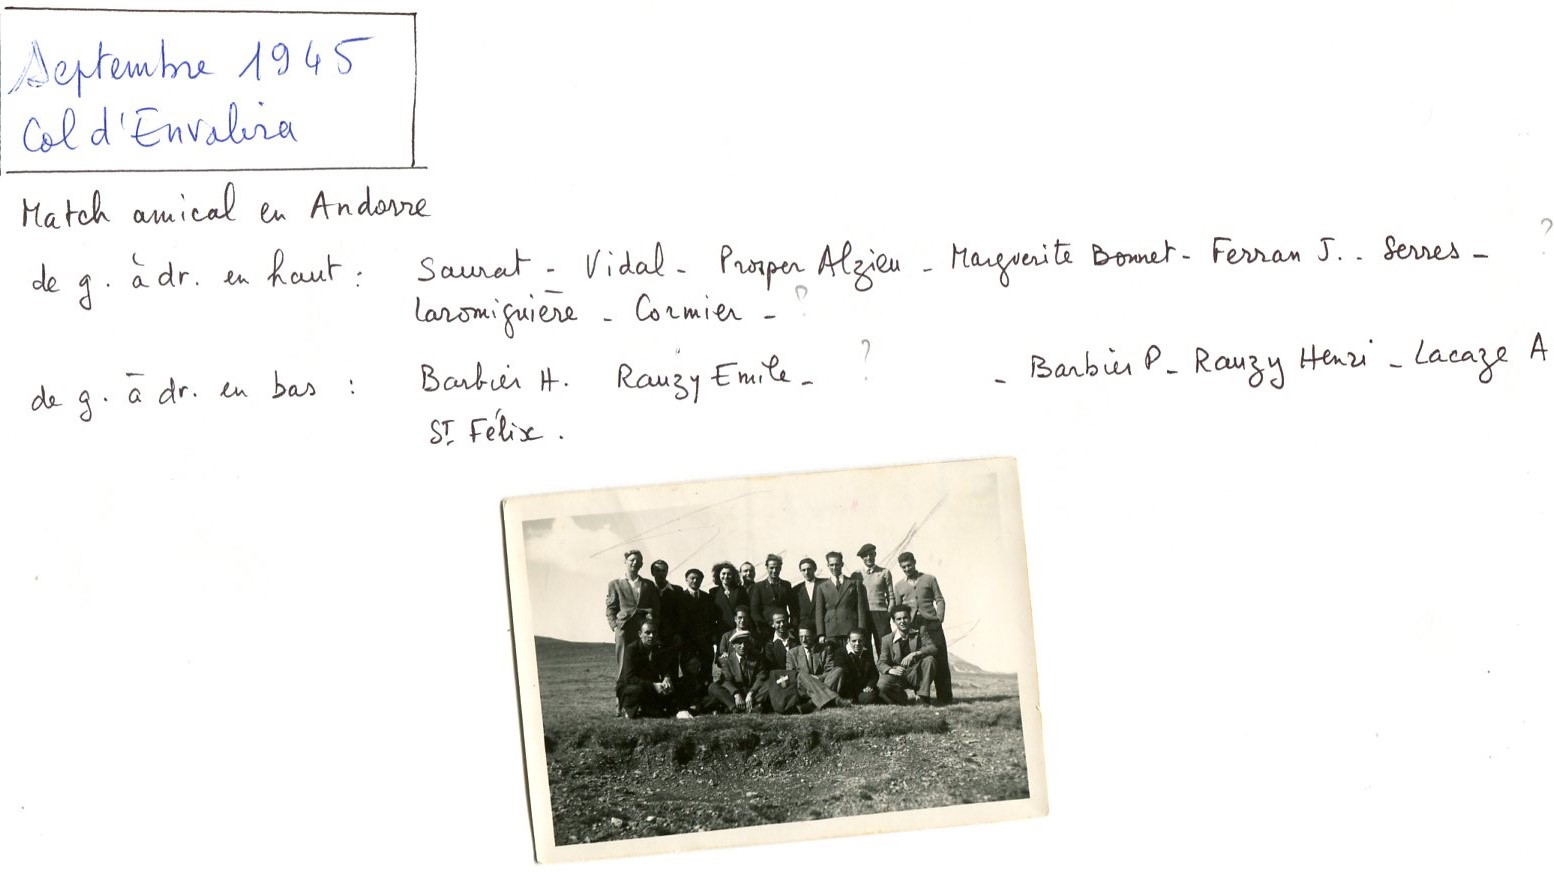 Septembre 1945
Col d'Envalira
Match amical en Andorre
de g. à dr. en haut : Saurat - Vidal - Prosper Alzieu - Marguerite Bonnet - Ferran J. - Serres - ?
Laromiguière - Cormier - ?
de g. à dr. en bas : Barbier H. Rauzy Emile - ? - Barbier P - Rauzy Henri - Lacaze A
St Félix .